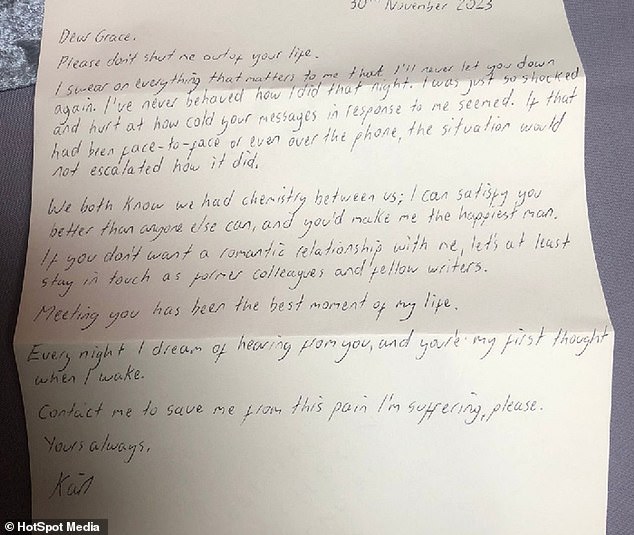 30th November 2023
Dear Grace.
Please don't shut me out of your life.
I swear on everything that matters to me that I'll never let you down
again. I've never behaved how I did that night. I was just so shocked
and hurt at how cold your messages in response to me seemed. If that
had been face-to-face or even over the phone, the situation would
not escalated how it did.
We both know we had chemistry between us; I can satisfy you
better than anyone else can, and you'd make me the happiest man.
If you don't want a romantic relationship with me, let's at least
stay in touch as former colleagues and fellow writers.
Meeting you has been the best moment of my life.
Every night I dream of hearing from you, and you're my first thought
when I wake.
Contact me to save me from this pain I'm suffering, please.
Yours always,
Karl
© HotSpot Media